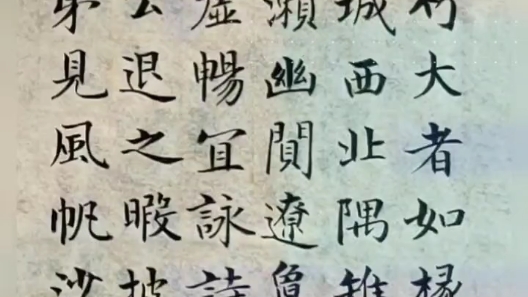 竹大者如椽
城西北隅雉
瀨幽闃遼夐
虛暢宜詠詩
公退之暇披
第見風帆沙